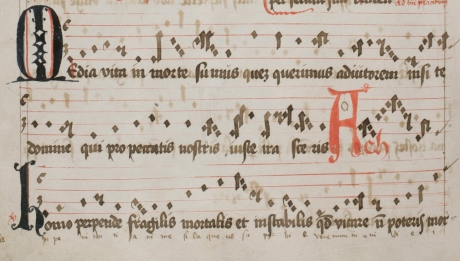 Media vita in morte sumus quez querimus adiutorem nisi te
domine qui pro peccatis nostris iuste ira sce ris Ach
Homo perpende fragilis mortalis et instabilis qd̄ vitare n̄ poteris mor